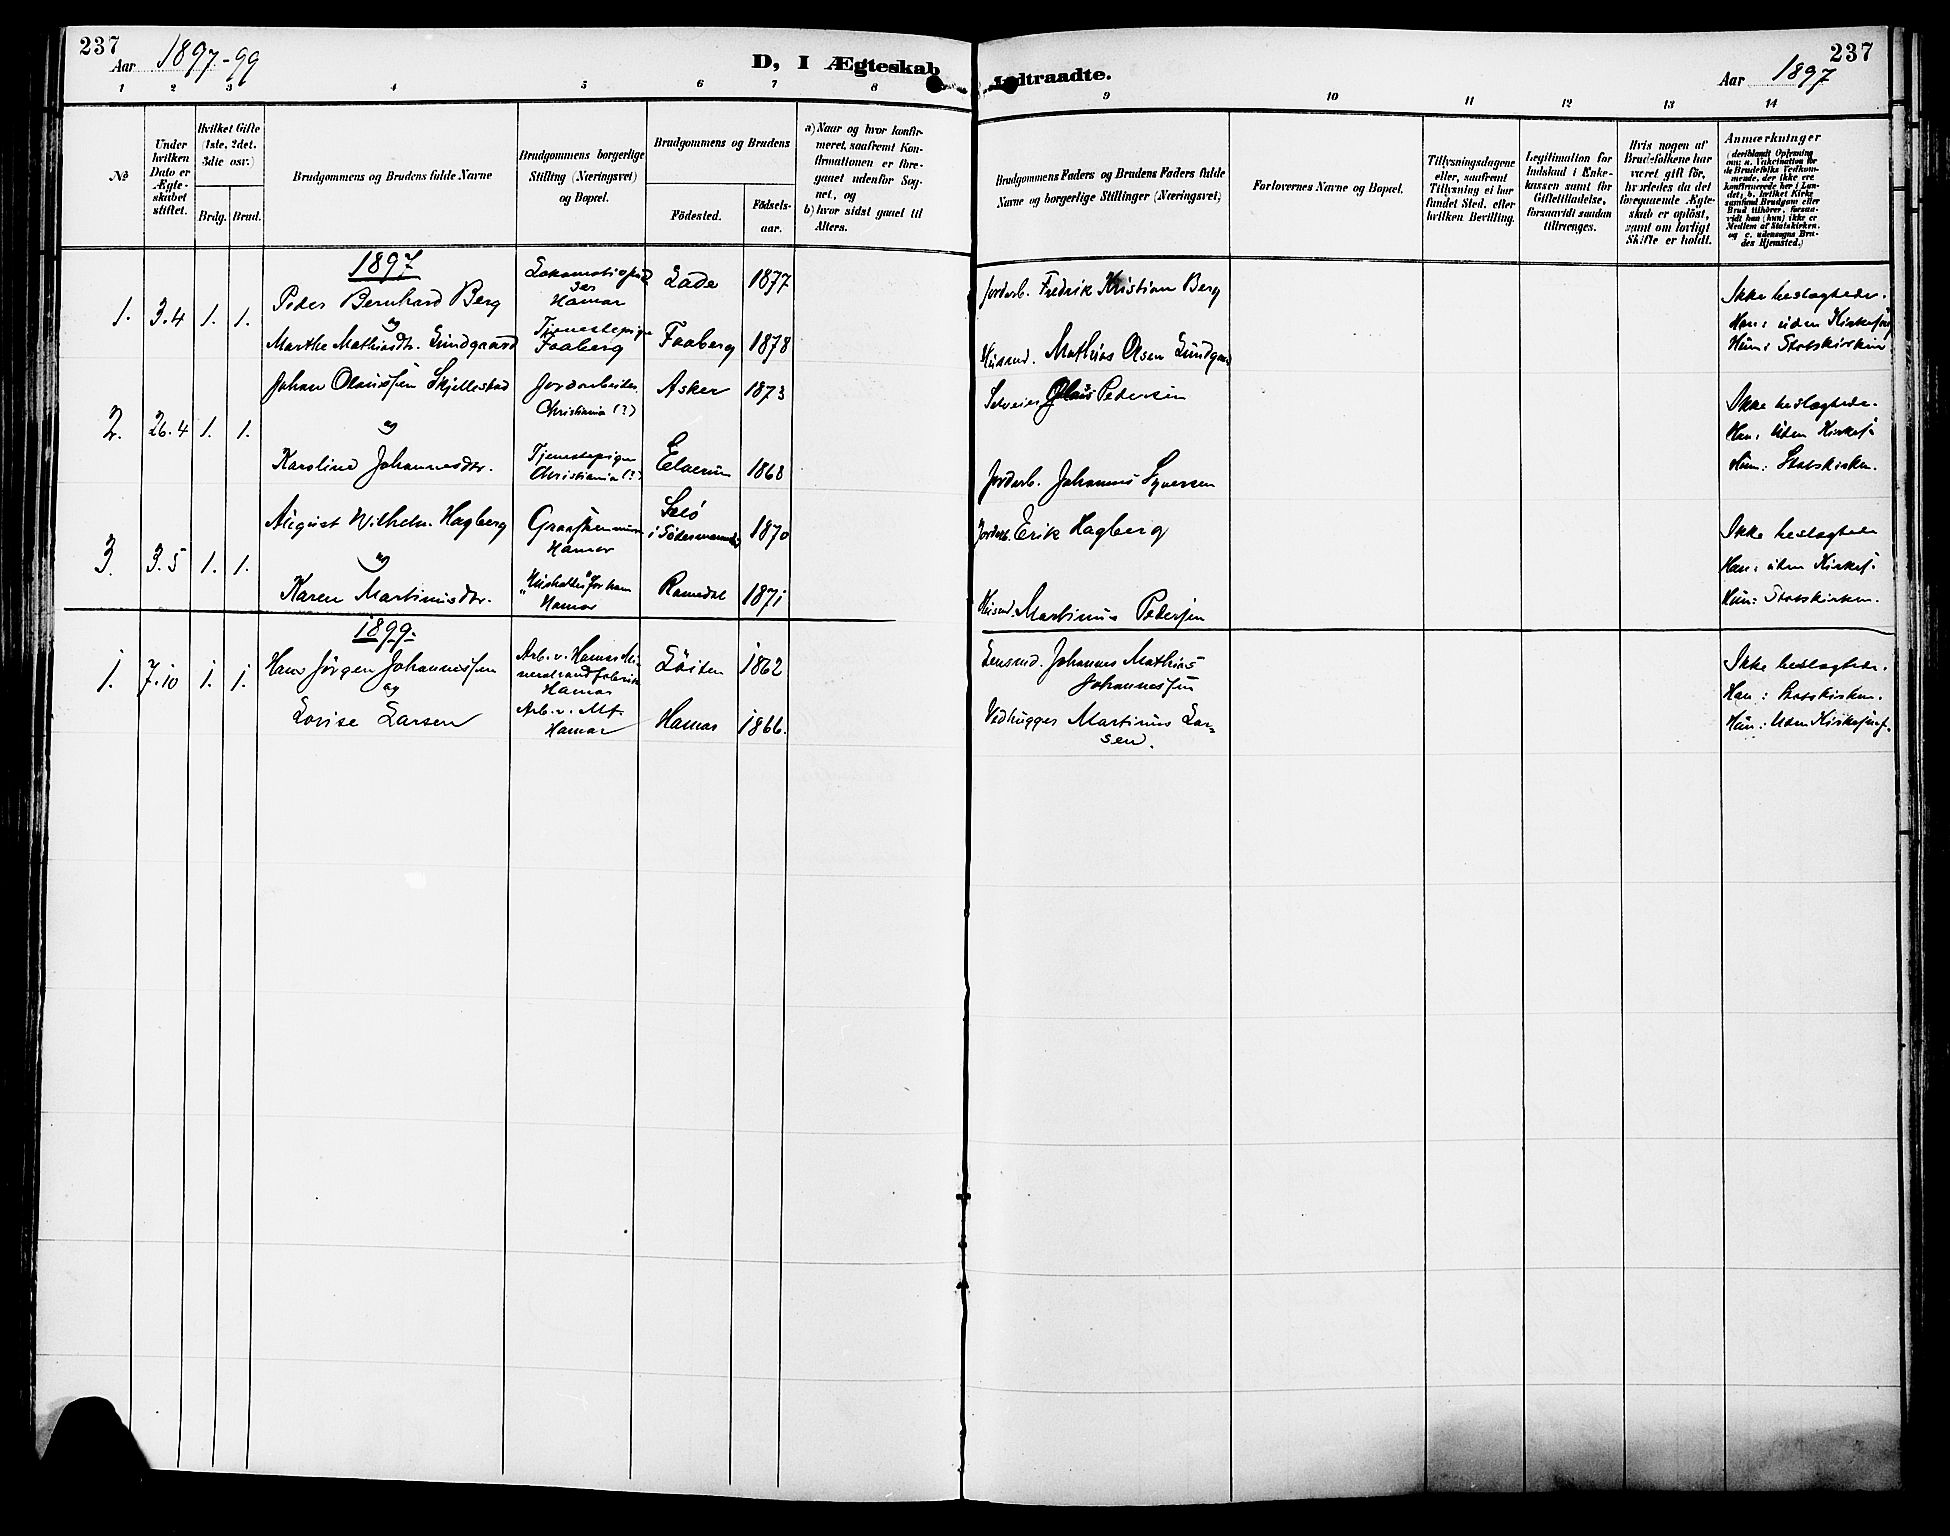 237
Aar 1897-99
D, I Ægteskab
Indtraadte.
Aar 1897
237
1 2 3 4 5 6 7 8
9 10 11 12 13 14
No
Under hvilken Dato er Ægteskabet stiftet.
Hvilket Gifte (1ste, 2det, 3die osv.)
Brdg. Brud.
Brudgommens og Brudens fulde Navne
Brudgommens borgerlige Stilling (Næringsvei) og Bopæl.
Brudgommens og Brudens
Födested.
Födsels-aar.
a) Naar og hvor konfirmeret, saafremt Konfirmationen er foregaaet udenfor Sognet, og
b) hvor sidst gaaet til Alters.
Brudgommens Faders og Brudens Faders fulde Navne og borgerlige Stillinger (Næringsvei)
Forlovernes Navne og Bopæl.
Tillysningsdagene eller, saafremt Tillysning ei har fundet Sted, efter hvilken Bevilling.
Legitimation for Indskud i Enkekassen samt for Giftetilladelse, forsaavidt saadan tiltrænges.
Hvis nogen af Brudefolkene har været gift för, hvorledes da det foregaaende Ægteskab er oplöst, samt om lovligt Skifte er holdt.
Anmærkninger
(deriblandt Oplysning om: a. Vakcination for de Brudefolks Vedkommende, der ikke ere konfirmerede her i Landet; b. hvilket Kirkesamfund Brudgom eller Brud tilhörer, forsaavidt han (hun) ikke er Medlem af Statskirken, og c. udensogns Brudes Hjemsted.)
1897
1. 3.4 1. 1. Peder Bernhard Berg
og
Marthe Mathiasdtr. Lundgaard
Hamar
Tjenestepige
Faaberg
Lade 1877
Faaberg 1878
Jordarb. Fredrik Kristian Berg
Husmd. Mathias Olsen Lundgaard
Ikke beslægtede.
Han: uden Kirkesamf.
Hun: Statskirken
2. 26.4 1. 1. Johan Olaussen Skjellestad
og
Karoline Johannesdtr.
Jordarbeider
Christiania (?)
Tjenestepige
Christiania (?)
Asker 1873
Elverum 1868
Selveier Olaus Pedersen
Jordarb. Johannes Syversen
Ikke beslægtede.
Han: Uden Kirkes.
Hun: Statskirken.
3. 3.5 1. 1. August Wilhelm Hagberg
og
Karen Martinusdtr.
Hamar
"Husholder" for ham
Hamar
Selö
i Södermanland 1870
Romedal 1871
Jordarb. Erik Hagberg
Husmd. Martinus Pedersen
Ikke beslægtede
Han: uden Kirkes.
Hun: Statskirken.
1899.
1. 7.10 1. 1. Hans Jörgen Johannessen
og
Lovise Larsen
Arb. v. Hamar
Hamar
Arb. v. Mf.
Hamar
Löiten 1862
Hamar 1866.
Johannes Mathias
Johannessen
Vedhugger Martinus Larsen.
Ikke beslægtede.
Han: Statskirken.
Hun: Uden Kirkesamf.